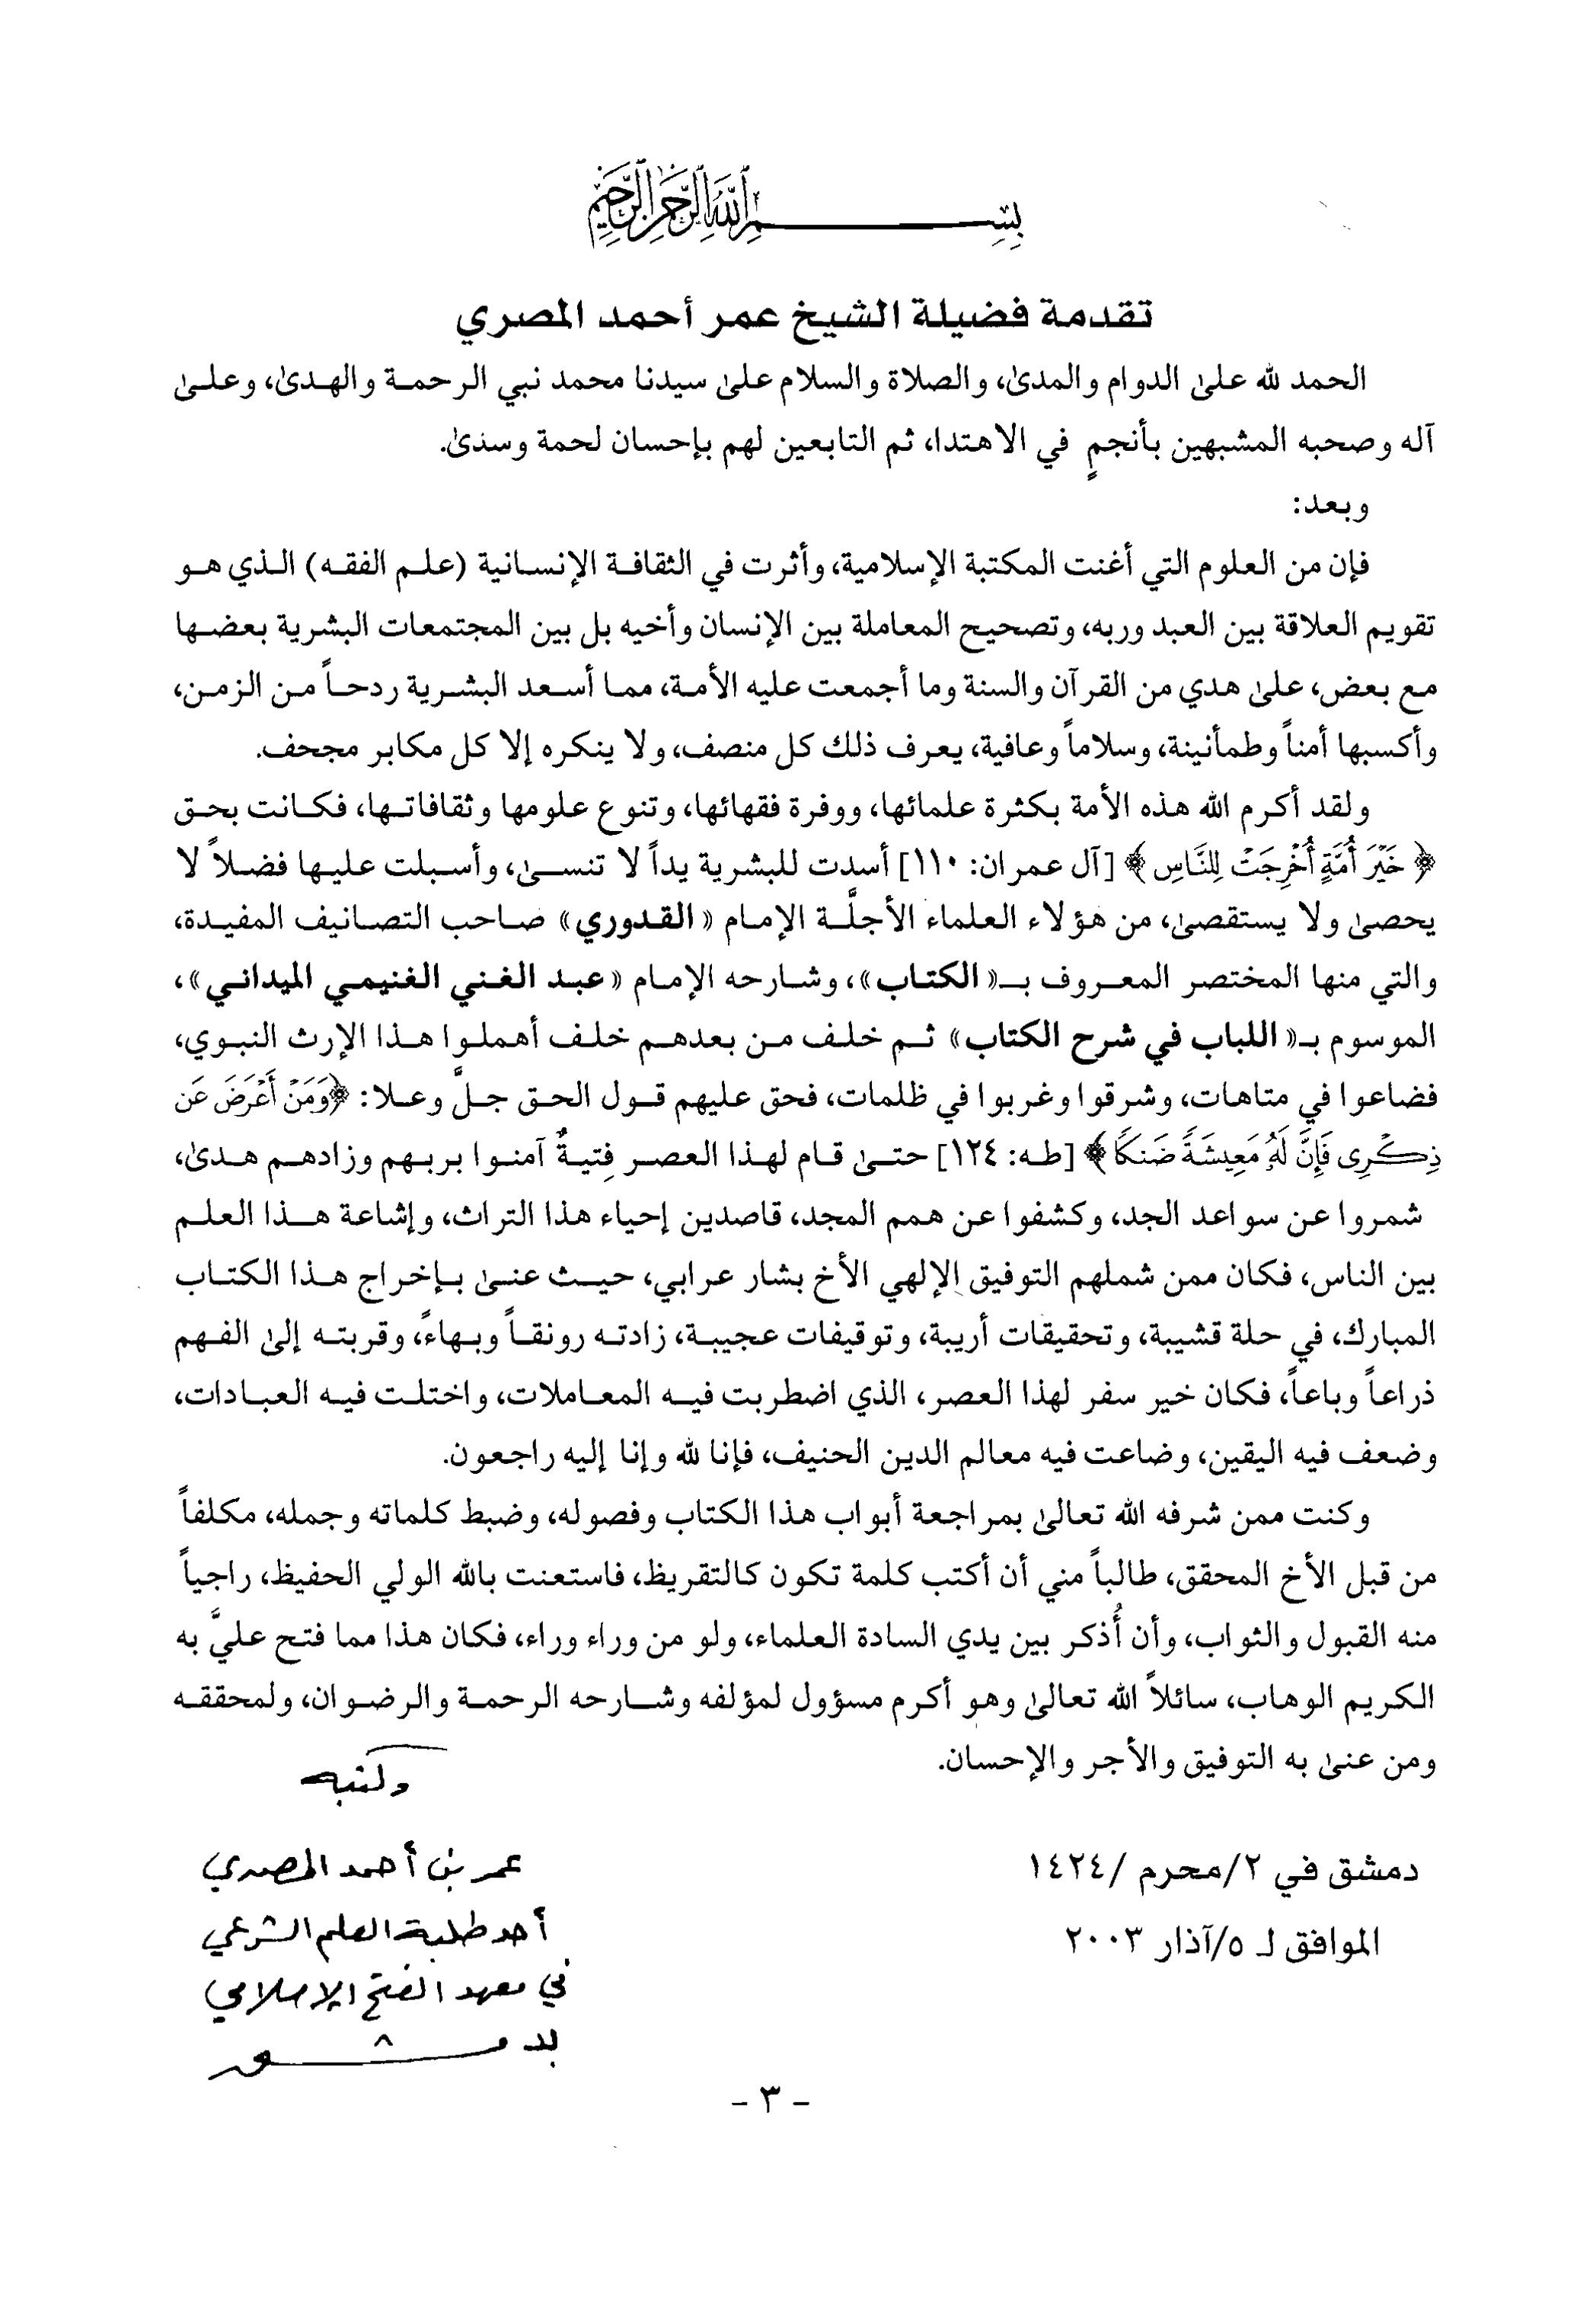 بِسْمِ اللَّهِ الرَّحْمَنِ الرَّحِيمِ
تقدمة فضيلة الشيخ عمر أحمد المصري
الحمد لله علىٰ الدوام والمدىٰ، والصلاة والسلام علىٰ سيدنا محمد نبي الرحمـة والهـدىٰ، وعلـىٰ
آله وصحبه المشبهين بأنجمٍ في الاهتدا، ثم التابعين لهم بإحسان لحمة وسدىٰ.
وبعد:
فإن من العلوم التي أغنت المكتبة الإسلامية، وأثرت في الثقافـة الإنسـانية (علـم الفقـه) الـذي هـو
تقويم العلاقة بين العبد وربه، وتصحيح المعاملة بين الإنسان وأخيه بل بين المجتمعات البشرية بعضـها
مع بعض، علىٰ هدي من القرآن والسنة وما أجمعت عليه الأمـة، ممـا أسـعد البشـرية ردحـاً مـن الزمـن،
وأكسبها أمناً وطمأنينة، وسلاماً وعافية، يعرف ذلك كل منصف، ولا ينكره إلا كل مكابر مجحف.
ولقد أكرم الله هذه الأمة بكثرة علمائها، ووفرة فقهائها، وتنوع علومها وثقافاتـها، فكـانت بحـق
﴿ خَيْرَ أُمَّةٍ أُخْرِجَتْ لِلنَّاسِ ﴾ [آل عمران: ١١٠] أسدت للبشرية يداً لا تنسـىٰ، وأسـبلت عليـها فضـلاً لا
يحصىٰ ولا يستقصىٰ، من هؤلاء العلماء الأجلَّـة الإمـام «القـدوري» صـاحب التصـانيف المفيـدة،
والتي منها المختصر المعـروف بـ«الكتـاب»، وشـارحه الإمـام «عبـد الغـني الغنيمـي الميدانـي»،
الموسوم بـ«اللباب في شرح الكتاب» ثـم خلـف مـن بعدهـم خلـف أهملـوا هـذا الإرث النبـوي،
فضاعوا في متاهات، وشرقوا وغربوا في ظلمات، فحق عليهم قـول الحـق جـلَّ وعـلا: ﴿وَمَنْ أَعْرَضَ عَن
ذِكْرِى فَإِنَّ لَهُۥ مَعِيشَةً ضَنكًا﴾ [طـه: ١٢٤] حتـىٰ قـام لهـذا العصـر فِتيـةٌ آمنـوا بربـهم وزادهـم هـدىٰ،
شمروا عن سواعد الجد، وكشفوا عن همم المجد، قاصدين إحياء هذا التراث، وإشاعة هـذا العلـم
بين الناس، فكان ممن شملهم التوفيق الإلهي الأخ بشار عرابي، حيـث عنـىٰ بـإخراج هـذا الكتـاب
المبارك، في حلة قشيبة، وتحقيقات أريبة، وتوقيفات عجيبـة، زادتـه رونقـاً وبـهاءً، وقربتـه إلىٰ الفـهم
ذراعاً وباعاً، فكان خير سفر لهذا العصر، الذي اضطربت فيـه المعـاملات، واختلـت فيـه العبـادات،
وضعف فيه اليقين، وضاعت فيه معالم الدين الحنيف، فإنا لله وإنا إليه راجعون.
وكنت ممن شرفه الله تعالىٰ بمراجعة أبواب هذا الكتاب وفصوله، وضبط كلماته وجمله، مكلفاً
من قبل الأخ المحقق، طالباً مني أن أكتب كلمة تكون كالتقريظ، فاستعنت بالله الولي الحفيظ، راجياً
منه القبول والثواب، وأن أُذكر بين يدي السادة العلماء، ولو من وراء وراء، فكان هذا مما فتح عليَّ به
الكريم الوهاب، سائلاً الله تعالىٰ وهو أكرم مسؤول لمؤلفه وشـارحه الرحمـة والرضـوان، ولمحققـه
ومن عنىٰ به التوفيق والأجر والإحسان.
وكتبه
دمشق في ٢/محرم /١٤٢٤
عمر بن أحمد المصري
الموافق لـ ٥/آذار ٢٠٠٣
أحد طلبة العلم الشرعي
في معهد الفتح الإسلامي
بدمشق
- ٣ -